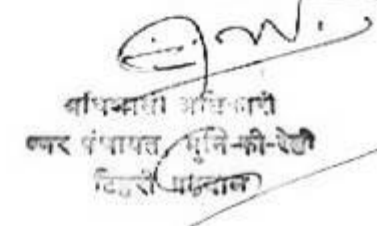 अधिशासी अधिकारी
नगर पंचायत, मुनि-की-रेती
टिहरी गढ़वाल